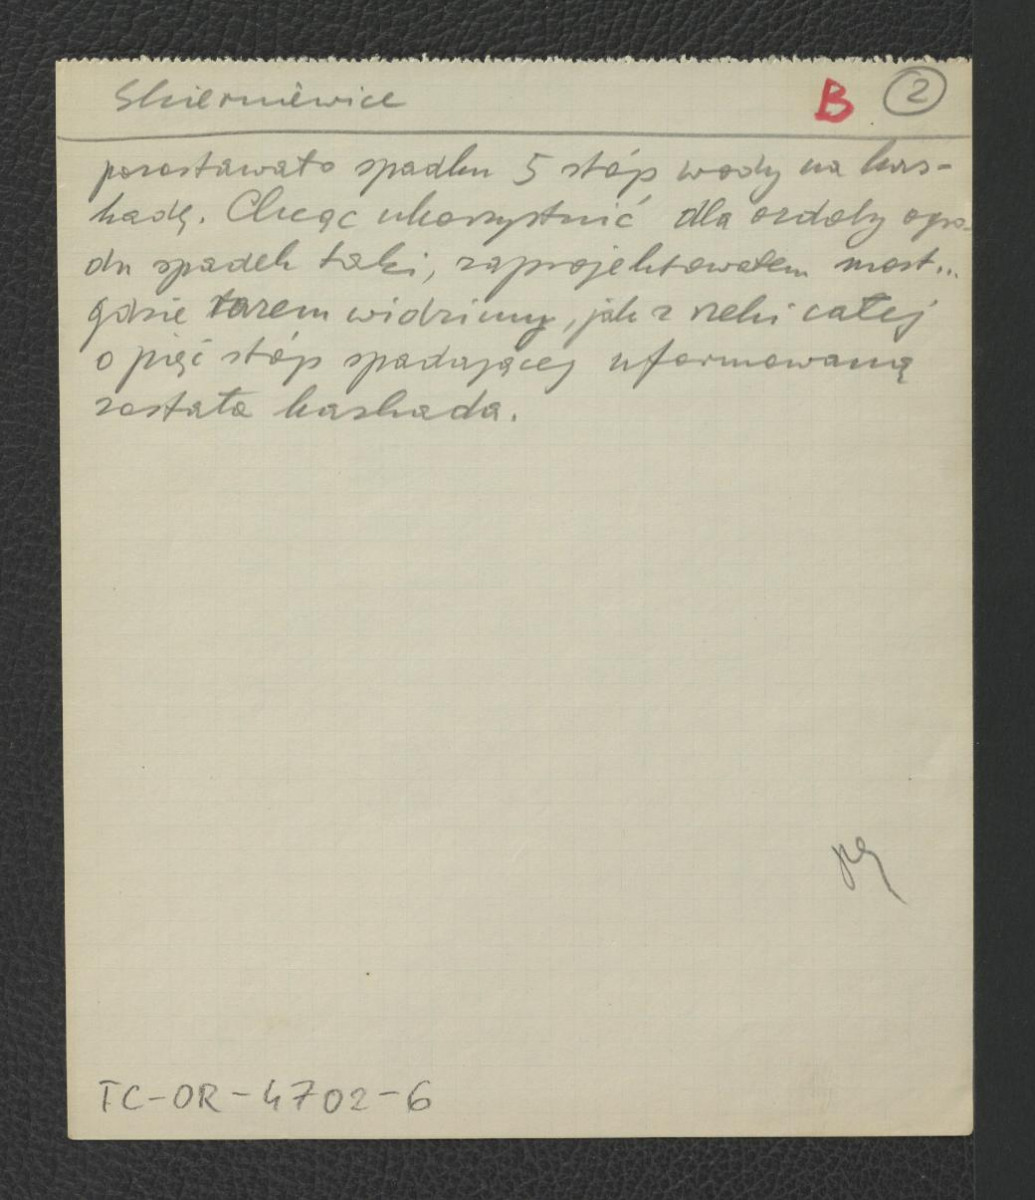 Skierniewice B 2
pozostawało spadku 5 stóp wody na kas-
kadę. Chcąc ukorzystnić dla ozdoby ogro-
du spadek taki, zaprojektowałem most...
gdzie razem widzimy, jak z rzeki całej
o pięć stóp spadającej uformowaną
została kaskada.
TC-OR-4702-6